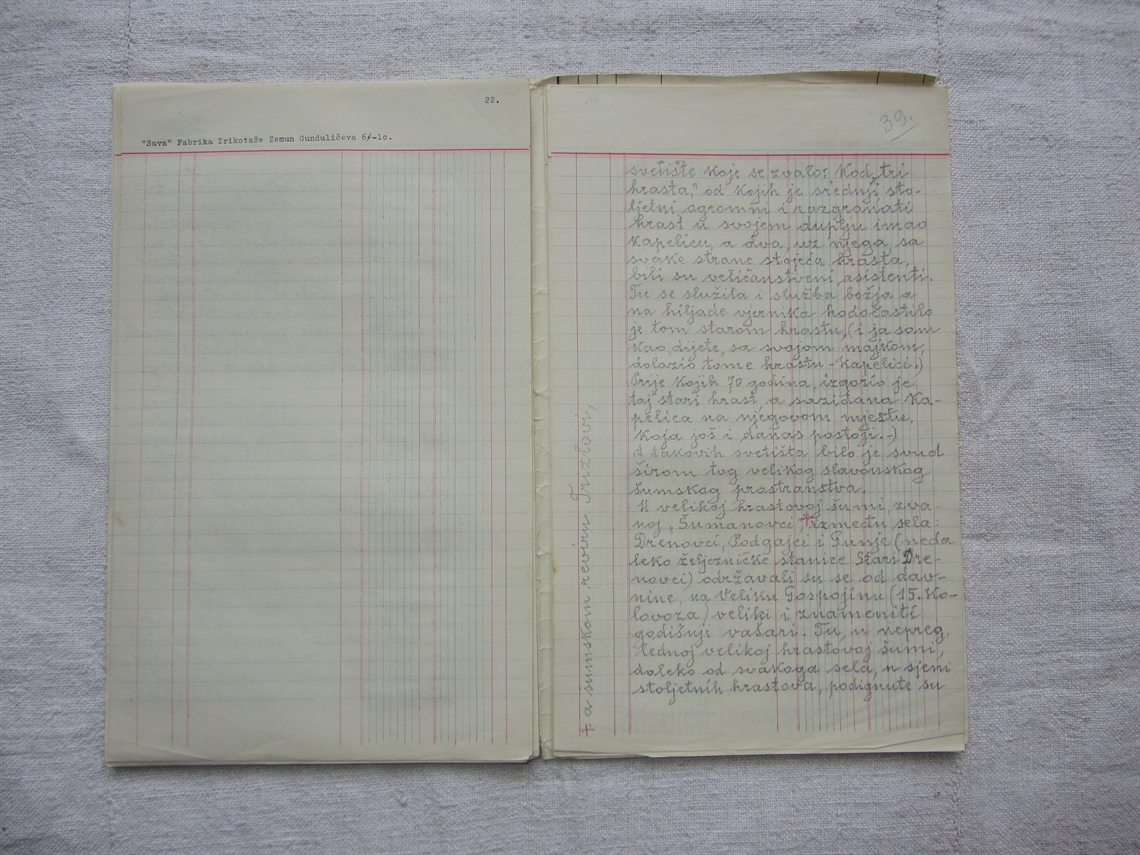 22.
"Sava" Fabrika Trikotaže Zemun Gunduličeva 6/-10.
39.
svetište koje se zvalo: Kod „tri
hrasta," od kojih je srednji sto-
ljetni ogromni i razgranati
hrast u svojem duplju imao
kapelicu, a dva, uz njega sa
svake strane stojeća hrasta,
bili su veličanstveni asistenti.
Tu se služila i služba božja a
na hiljade vjernika hodočastilo
je tom starom hrastu, (i ja sam
kao dijete, sa svojom majkom,
dolazio tome hrastu-kapelici.)
Prije kojih 70 godina, izgorio je
taj stari hrast, a sazidana ka-
pelica na njegovom mjestu,
koja još i danas postoji.-)
I takovih svetišta bilo je svud
širom tog velikog slavonskog
šumskog prostranstva.
U velikoj hrastovoj šumi, zva-
noj „Šumanovci", + između sela:
Drenovci, Podgajci i Gunje (neda
leko željezničke stanice Stari Dre-
novci) održavali su se od dav-
nine, na Veliku Gospojinu (15. ko-
lovoza) veliki i znameniti
godišnji vašari. Tu, u nepreg,
lednoj velikoj hrastovoj šumi,
daleko od svakoga sela, u sjeni
stoljetnih hrastova, podignute su
+ a šumskom reviru Trizlovi,